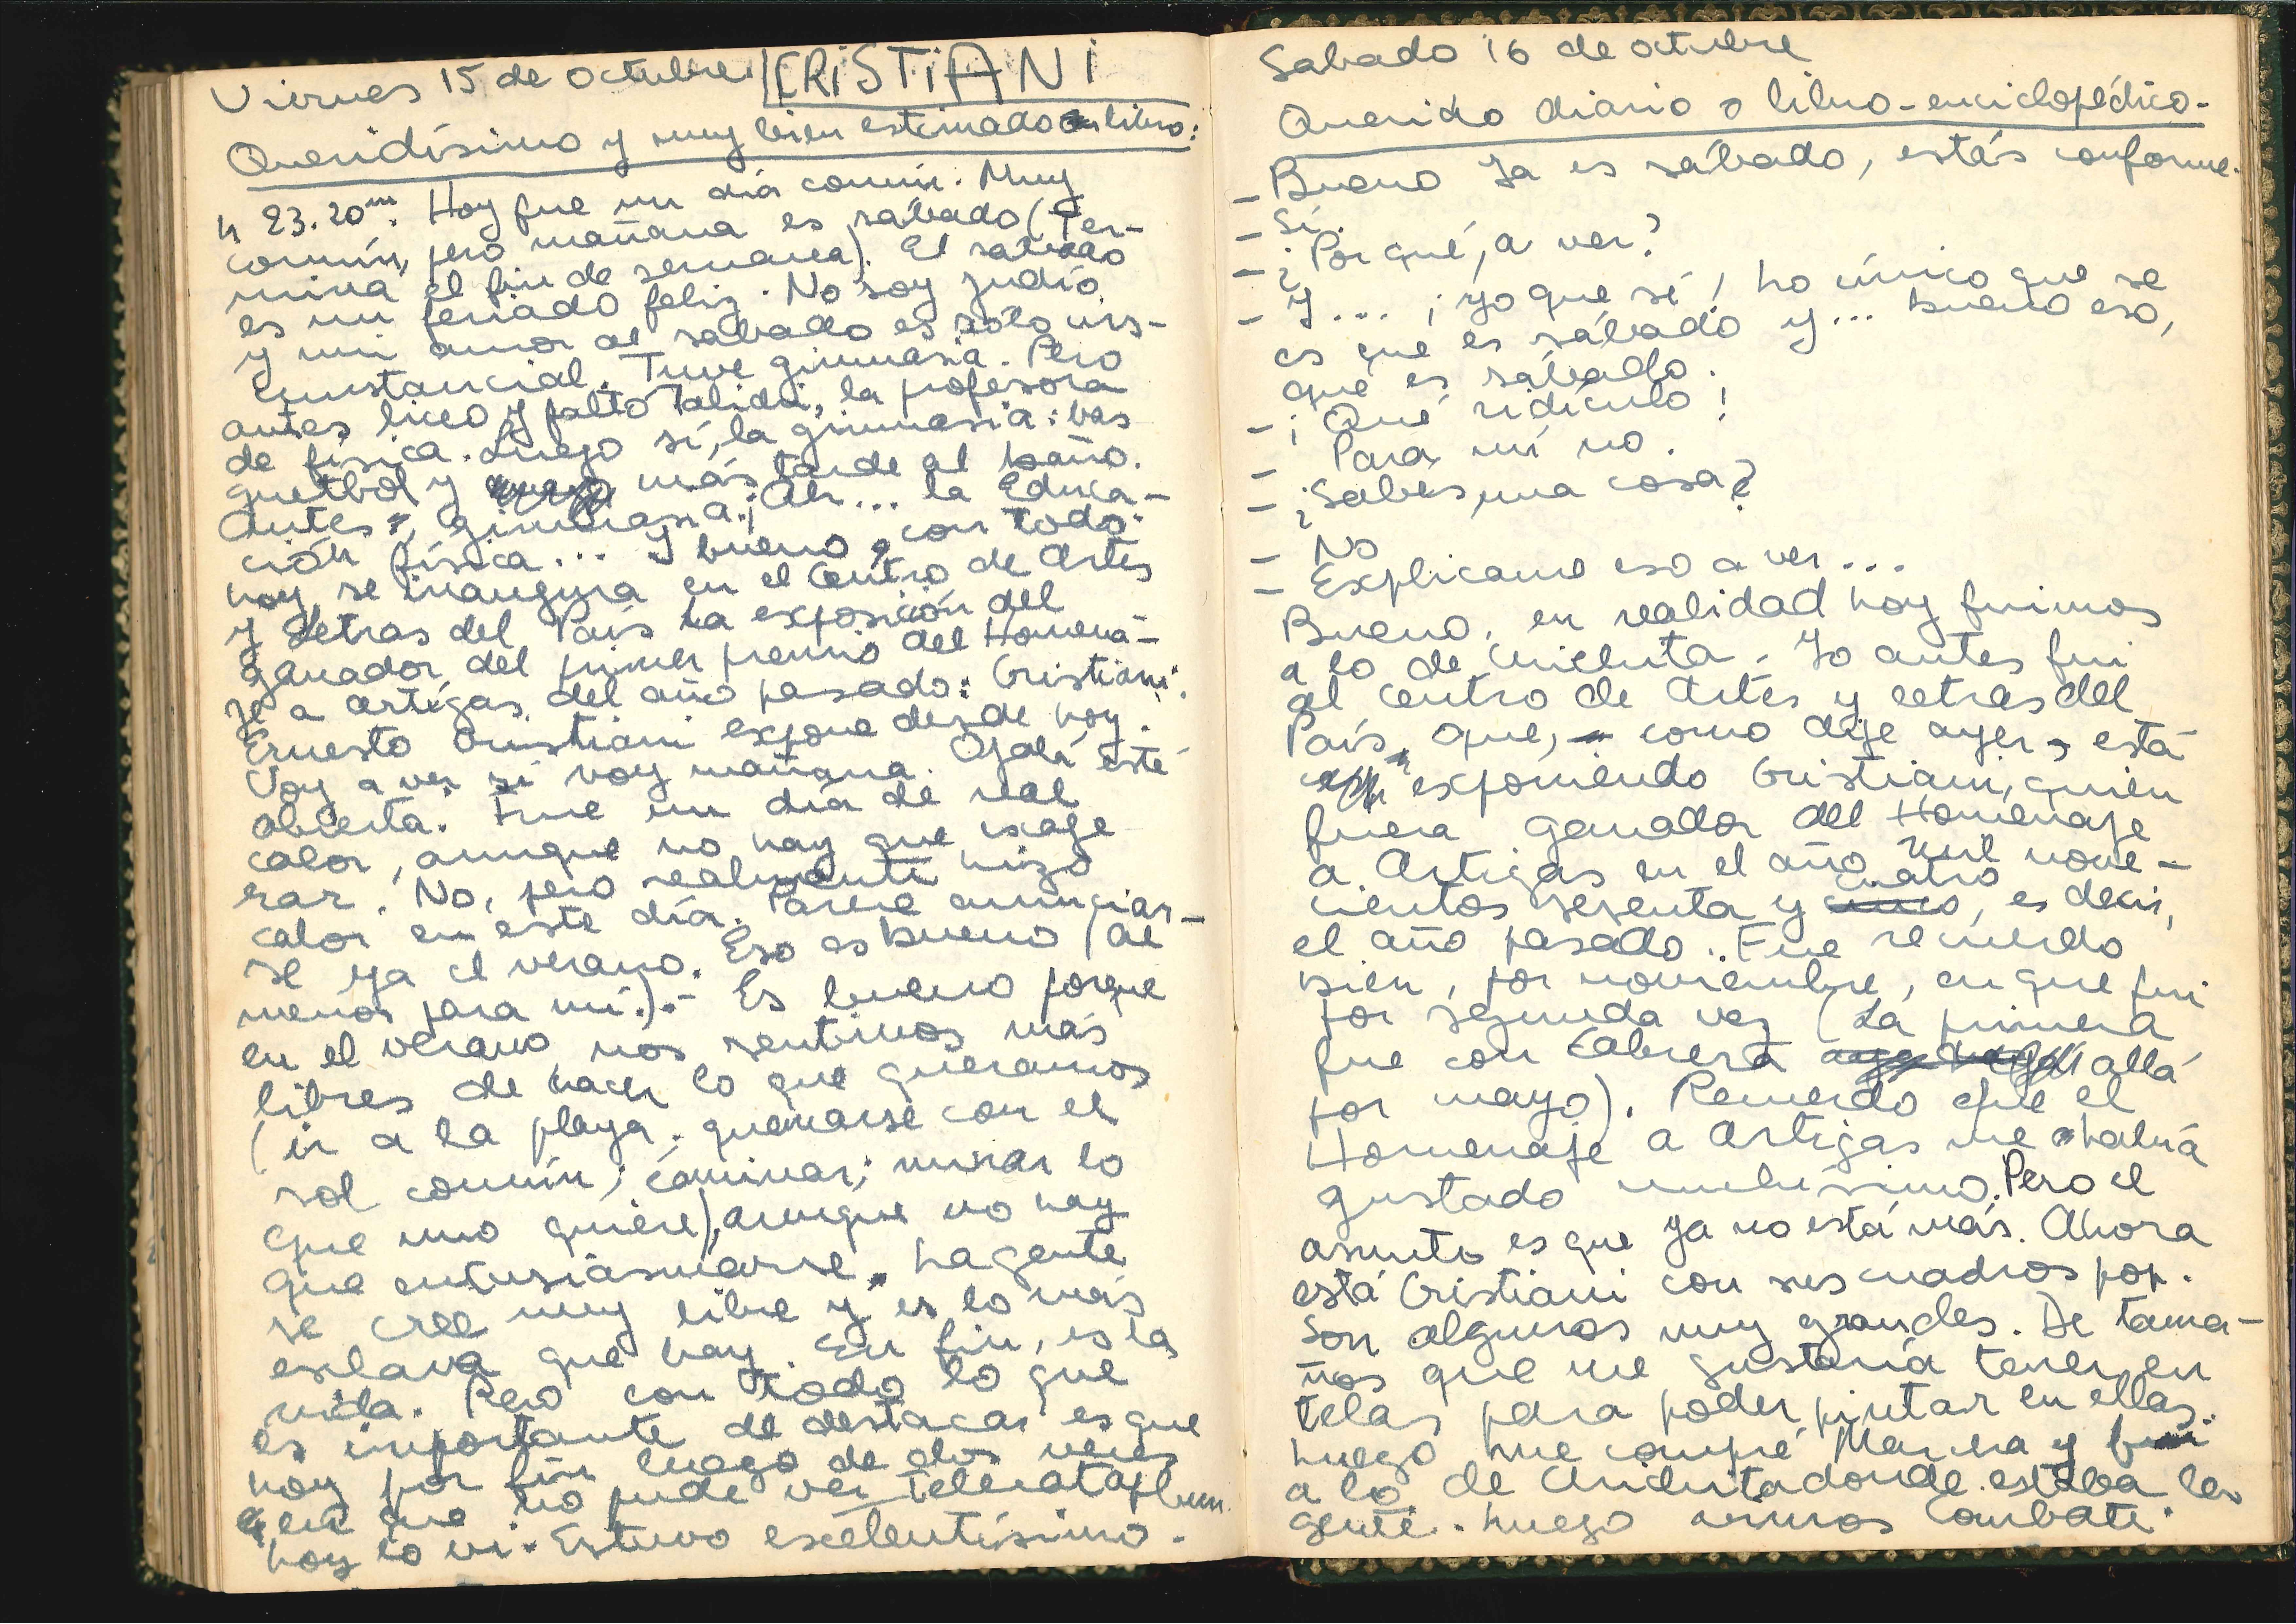 Viernes 15 de octubre. CRiSTiANi
Queridísimo y muy bien estimado libro:
h 23.20m. Hoy fue un día común. Muy
común, pero mañana es sábado (Ter-
mina el fin de semana). El sábado
es un feriado feliz. No soy judío,
y mi amor al sábado es sólo
cunstancial. Tuve gimnasia. Pero
antes liceo y faltó la profesora
de física. Luego sí, la gimnasia: bas
quetbol y más tarde al baño.
Antes, gimnasia. ¡Ah... la Educa-
ción física... Y bueno, con todo:
hoy se inaugura en el Centro de Artes
y Letras del País la exposición del
ganador del primer premio del Homena-
je a Artigas del año pasado: Cristiani.
Ernesto Cristiani expone desde hoy.
Voy a ver si voy mañana. Ojalá esté
abierta. Fue un día de real
calor, aunque no hay que exage
rar. No, pero realmente hizo
calor en este día. Parece anunciar-
se ya el verano. Eso es bueno (al
menos para mí.).- Es bueno porque
en el verano nos sentimos más
libres de hacer lo que queramos
(ir a la playa. quemarse con el
sol común; caminar; mirar lo
que uno quiere), aunque no hay
que entusiasmarse. La gente
se cree muy libre y es lo más
esclava que hay. En fin, es la
vida. Pero con todo lo que
es importante de destacar es que
hoy por fin luego de dos veces
en que no pude ver Telecataplum.
hoy lo vi. Estuvo excelentísimo.
Sabado 16 de octubre
Querido diario o libro-enciclopédico-
- Bueno Ya es sábado, estás conforme.
- Sí.
- ¿Por qué, a ver?
- Y... ¡yo que sé! Lo único que se
es que es sábado y... bueno eso,
que es sábado.
- ¡Qué ridículo!
- Para mí no.
- ¿Sabes una cosa?
- No
- Explicame eso a ver...
Bueno, en realidad hoy fuimos
a lo de Chichita. Yo antes fui
al Centro de Artes y Letras del
País, que, como dije ayer, está
exponiendo Cristiani, quien
fuera ganador del Homenaje
a Artigas en el año mil nove-
cientos sesenta y cuatro, es decir,
el año pasado. Fue recuerdo
bien, por noviembre, en que fui
por segunda vez (La primera
fue con Cabrera allá
por mayo). Recuerdo que el
Homenaje a Artigas me había
gustado muchísimo. Pero el
asunto es que ya no está más. Ahora
está Cristiani con sus cuadros pop.
Son algunos muy grandes. De tama-
ños que me gustaría tener en
telas para poder pintar en ellas.
Luego me compré Marcha y fui
a lo de Chichita donde estaba la
gente. Luego vimos Combate.